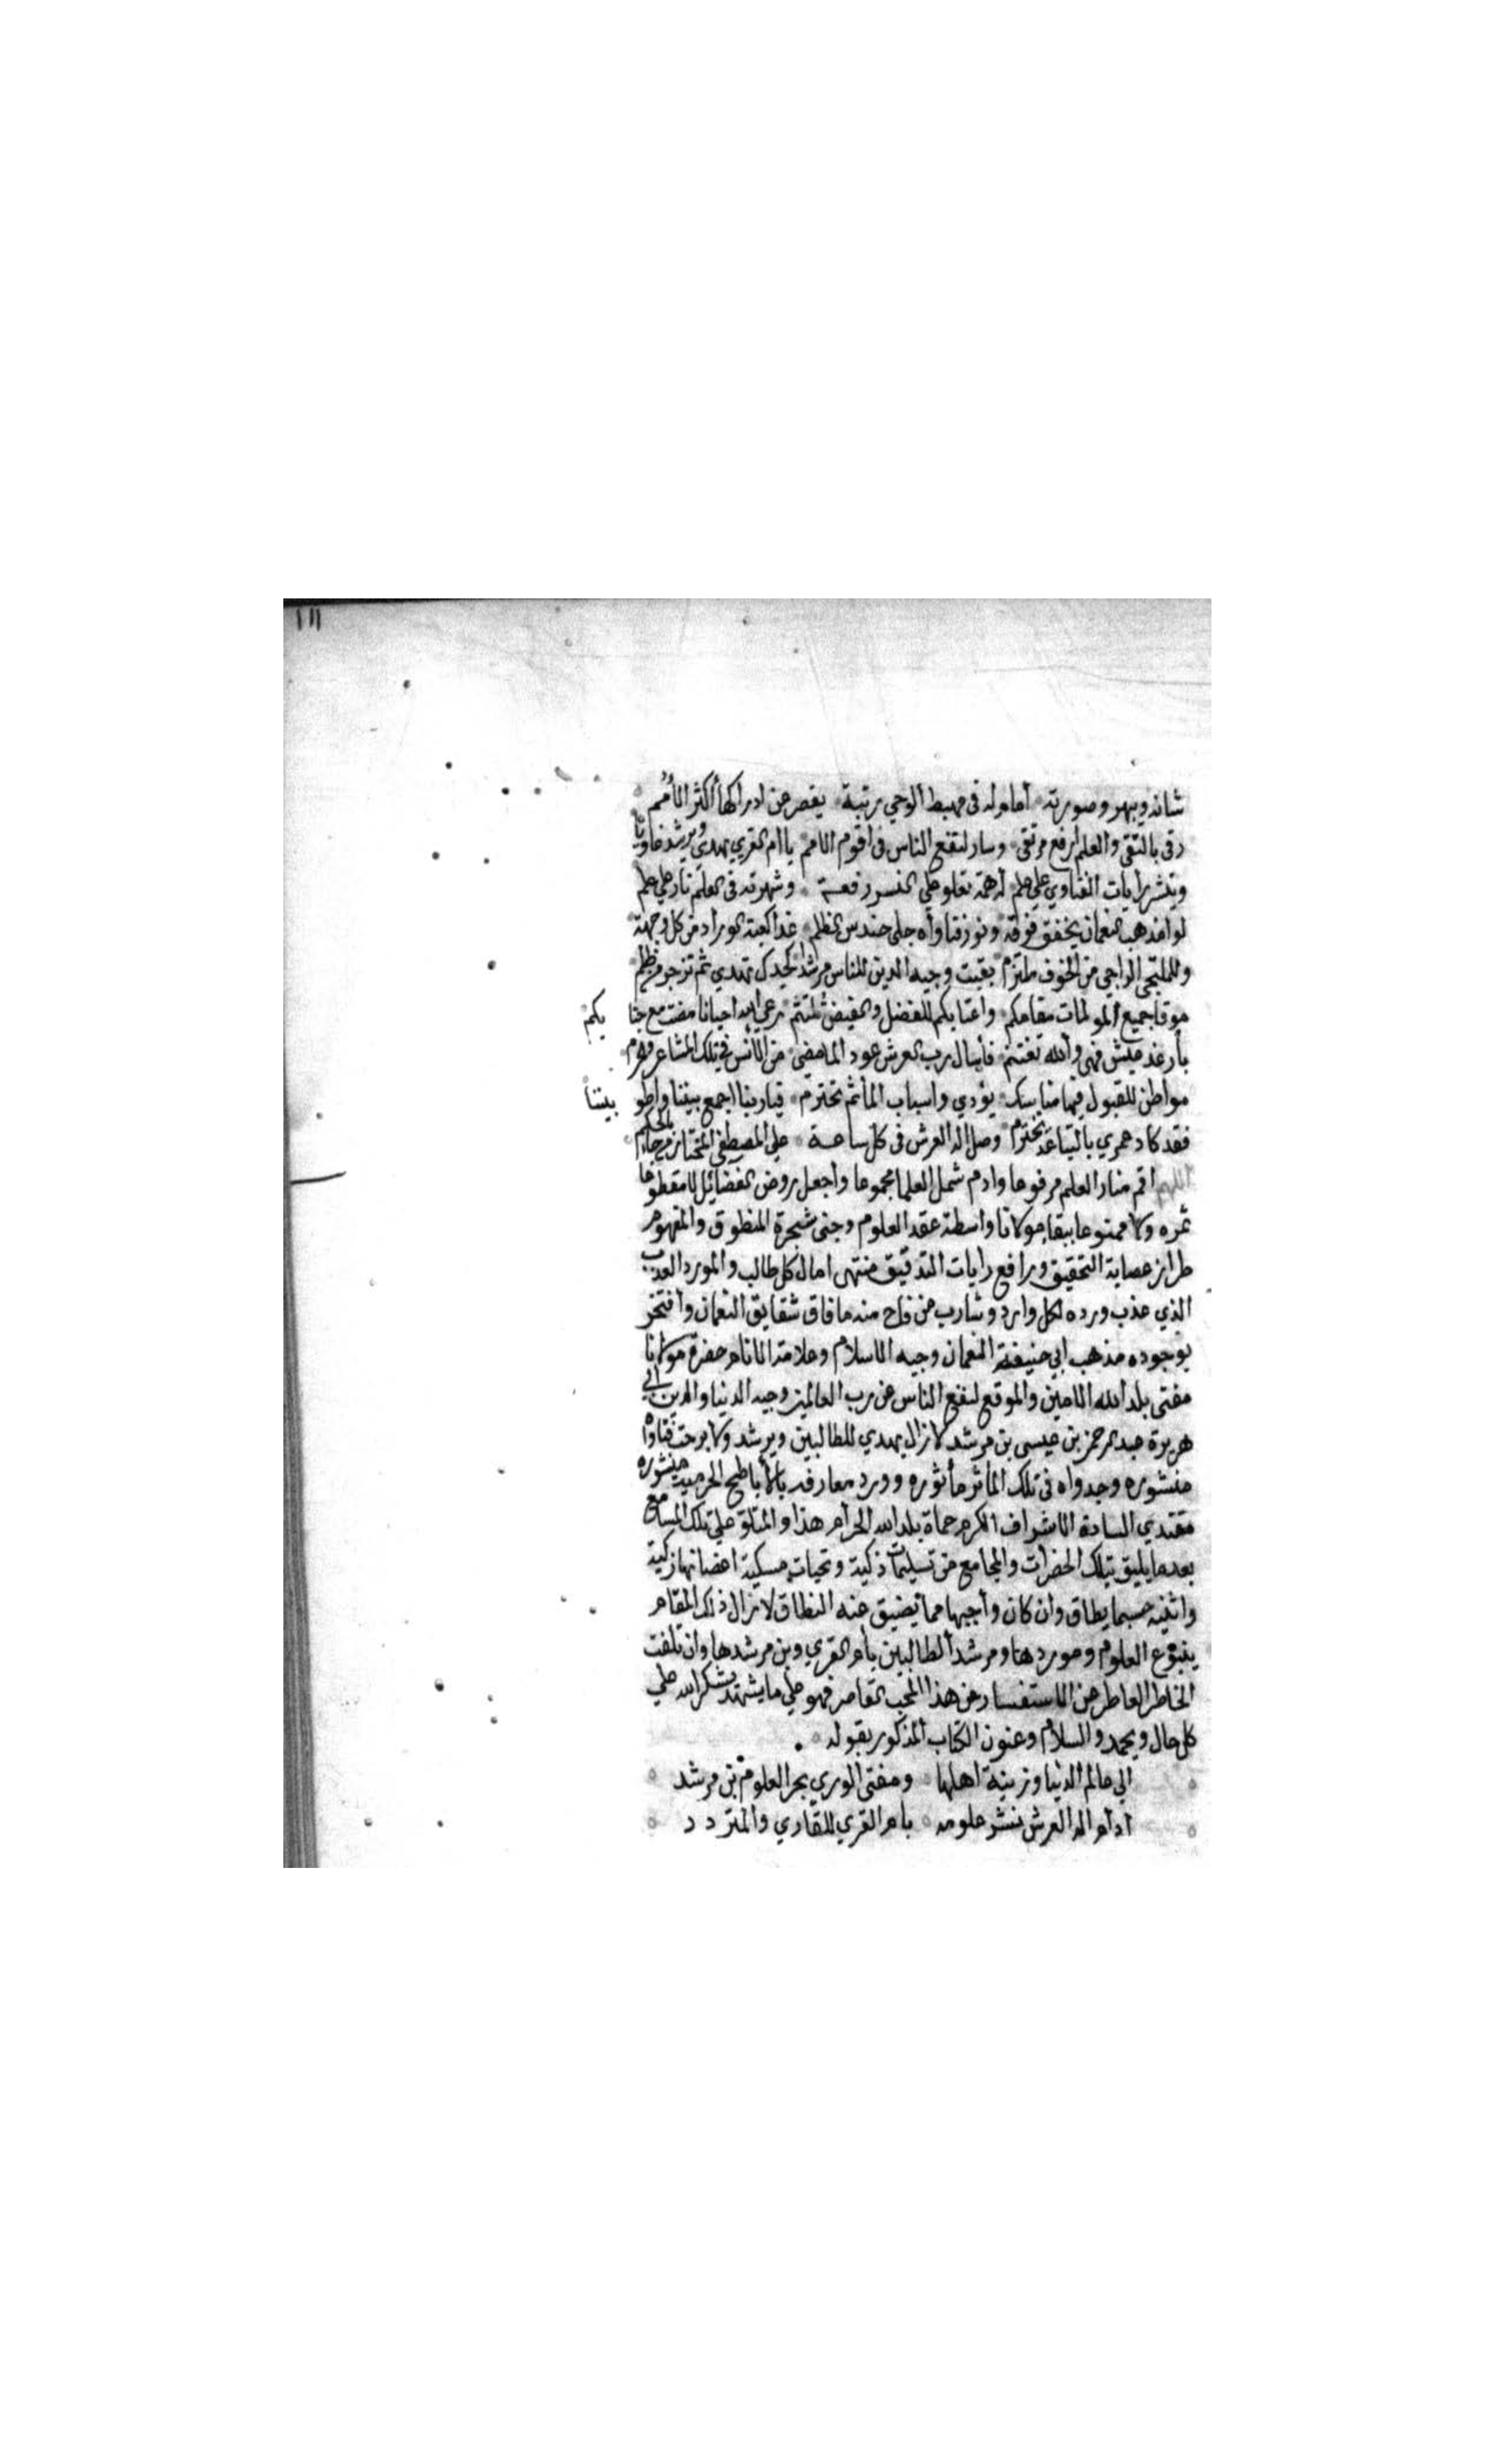 ١١١
شانه ويبهر وصورته امام له في مهبط الوحي رتبة يقصر عن ادراكها أكثر الأمم
رقى بالتقى والعلم ارفع مرتقى وسار لنفع الناس في اقوم الامم بأم القرى يهدي ويرشد غاويا
وينشر رايات الفتاوي على علم له همة تعلو على النسر رفعة وشهرته في العلم نار على علم
لوا مذهب النعمان يخفق فوقه ونور فتاواه جلى حندس الظلم غدا كعبة الوراد من كل وجهة
وللملتجي الراجي من الخوف ملتزم بقيت وجيه الدين للناس مرشدا تهدي ثم تزجر من ظلم
موقا جميع المولمات مقامكم واعتابكم للفضل والفيض تلتثم رعى الله احيانا مضت مع جنا يكم
بأرغد عيش فهي والله تغتنم فأسال رب العرش عود الما مضى من الأنس في تلك المشاعر والحرم
مواطن للقبول فيها مناسك يؤدي واسباب المأثم تخترم فياربنا اجمع بيننا واطو بيننا
فقد كاد عمري بالتباعد يخترم وصل اله العرش في كل ساعة على المصطفى المختار من جاء بالحكم
اللهم اقم منار العلم مرفوعا وادم شمل العلما مجموعا واجعل روض الفضائل لا مقطوعا
ثمره ولا ممنوعا ببقاء مولانا واسطة عقد العلوم وجنى شجرة المنطوق والمفهوم
طراز عصابة التحقيق ورافع رايات التدقيق منتهى امال كل طالب والمورد العذب
الذي عذب ورده لكل وارد وشارب من فاح منه ما فاق شقايق النعمان وافتخر
بوجوده مذهب ابي حنيفة النعمان وجيه الاسلام وعلامة الانام حضرة مولانا
مفتى بلد الله الامين والموقع لنفع الناس عن رب العالمين وجيه الدنيا والدين ابي
هريرة عبد الرحمن بن عيسى بن مرشد لا زال يهدي للطالبين ويرشد ولا برحت فتاواه
منشوره وجدواه في تلك المأثر مأثوره وورد معارفه بالأباطح الحرمية منشوره
مقتدي السادة الاشراف الكرم حماة بلد الله الحرام هذا والمتلو على تلك المسامع
بعد ما يليق بتلك الحضرات والمجامع من تسليمات ذكية وتحيات مسكية اغصانها زكية
واثنيه حسبما يطاق وان كان وأجبها مما يضيق عنه النطاق لا زال ذلك المقام
ينبوع العلوم وموردها ومرشد الطالبين بأم القرى وبن مرشدها وان تلفت
الخاطر العاطر عن الاستفسار عن هذا المحب القاصر فهو على ما يشهد يشكر الله على
كل حال ويحمد والسلام وعنون الكتاب المذكور بقوله
الي عالم الدنيا وزينة اهلها ومفتى الوري بحر العلوم بن مرشد
ادام اله العرش نشر علومه بام القري للقاري والمتردد